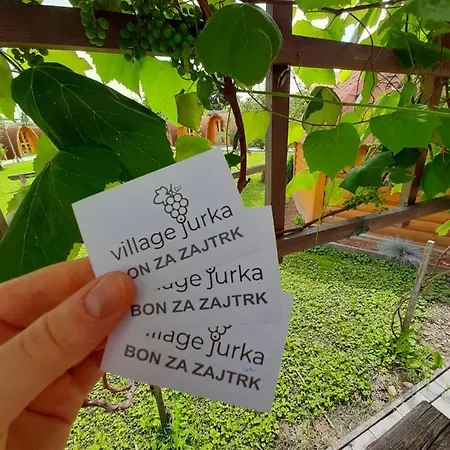 village jurka
BON ZA ZAJTRK
village jurka
BON ZA ZAJTRK
village jurka
BON ZA ZAJTRK